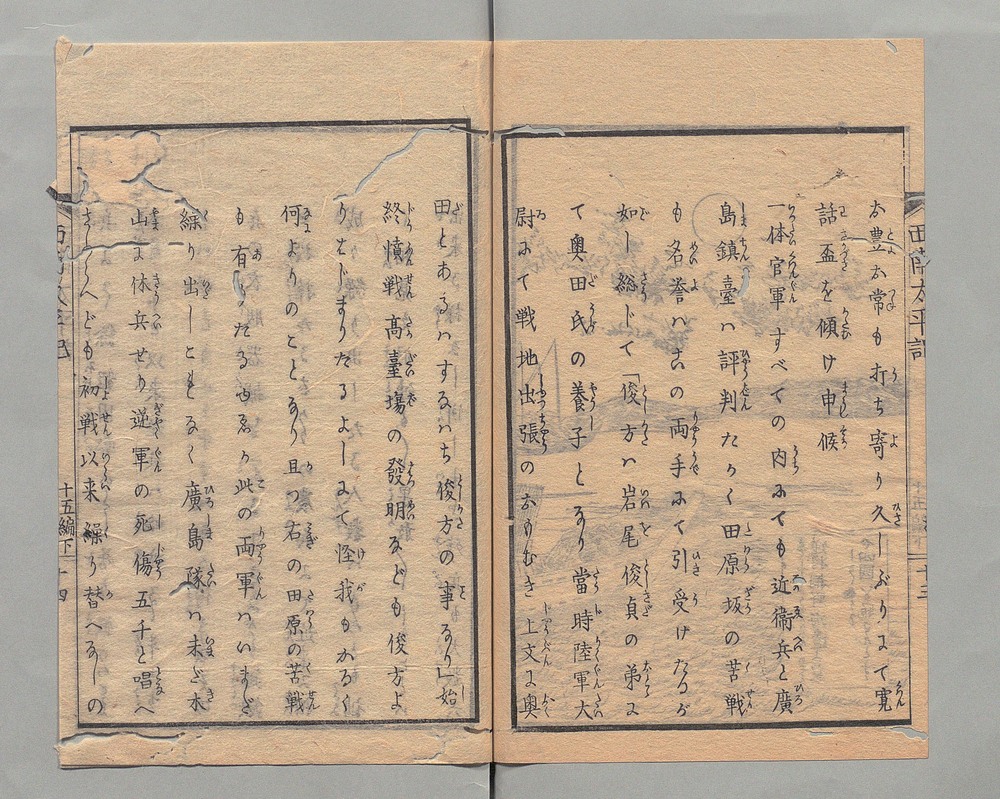 太豊太常も打ち寄り久しぶりにて寛
話盃を傾け申候
一体官軍すべての内にても近衞兵と廣
島鎮臺ハ評判たかく田原坂の苦戦
も名誉ハ此の両手にて引受けたるが
如し総じて「俊方ハ岩尾俊貞の弟に
て奥田氏の養子となり當時陸軍大
尉にて戦地出張のおもむき上文に奥
田とあるハすなハち俊方の事なり」始
終憤戦高臺塲の發明なども俊方よ
りはじまりたるよしにて怪我もかるく
何よりのことなり且つ右の田原の苦戦
も有りたるゆゑか此の両軍ハいまだ
繰り出しともなく廣島隊ハ未だ木
山に休兵せり逆軍の死傷五千と唱へ
さふらへども初戦以来繰り替へなしの
西南太平記
十五編下
十四
西南太平記
十五編下
十三